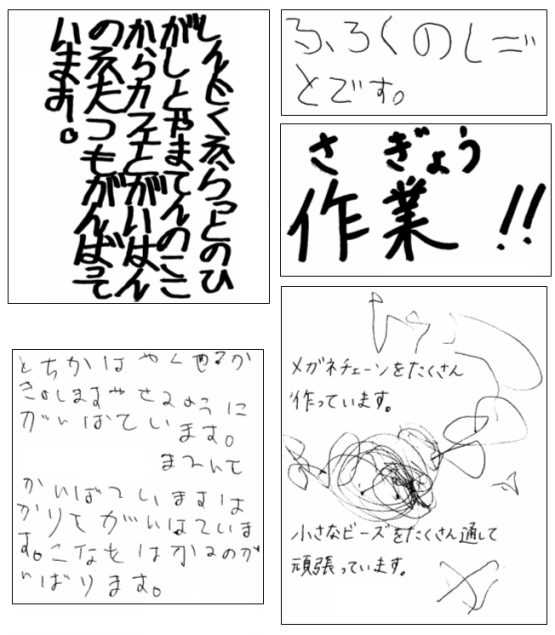 しんじくえらっとのひ
がしとやまてんのここ
からカフェとがいはん
のえんつもがんばって
います。
ふろくのしご
とです。
さぎょう
作業!!
とちかは やくやるか
きょします やせるように
がいばています。
まていて
かいばていますは
かりもがいはていま
す。こなもはかるのが
いばります。
メガネチェーンをたくさん
作っています。
小さなビーズをたくさん通して
頑張っています。